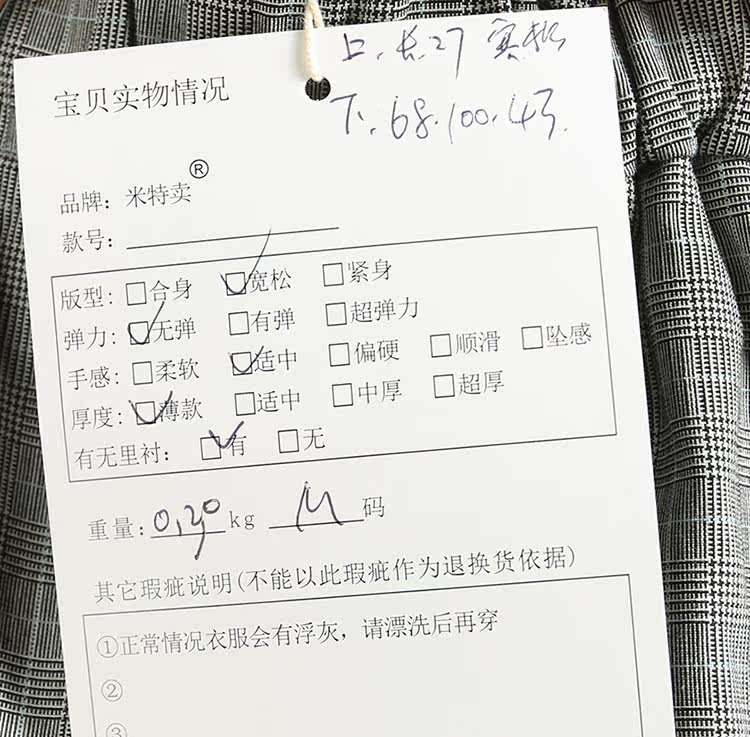 上.长.27 宽松
下.68.100.43.
宝贝实物情况
品牌：米特卖®
款号：
版型：□合身 ☑宽松 □紧身
弹力：☑无弹 □有弹 □超弹力
手感：□柔软 ☑适中 □偏硬 □顺滑 □坠感
厚度：☑薄款 □适中 □中厚 □超厚
有无里衬：☑有 □无
重量：0.20kg M码
其它瑕疵说明(不能以此瑕疵作为退换货依据)
①正常情况衣服会有浮灰，请漂洗后再穿
②
③